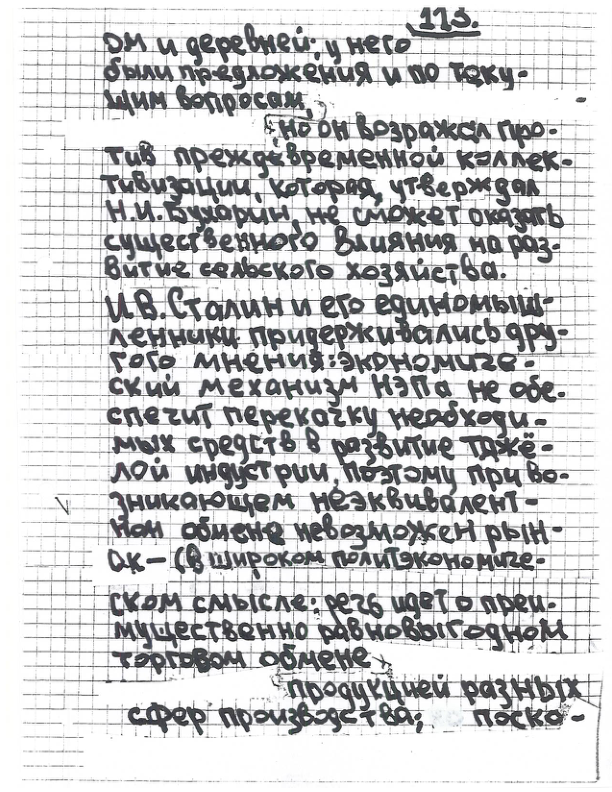 113.
ом и деревней; у него
были предложения и по теку-
щим вопросам,
но он возражал про-
тив преждевременной коллек-
тивизации, которая, утверждал
Н.И.Бухарин, не сможет оказать
существенного влияния на раз-
витие сельского хозяйства.
И.В.Сталин и его единомыш-
ленники придерживались дру-
гого мнения: экономиче-
ский механизм НЭПа не обе-
спечит перекачку необходи-
мых средств в развитие тяжё-
лой индустрии, поэтому при во-
зникающем неэквивалент-
ном обмене невозможен рын-
ок — (в широком политэкономиче-
ском смысле: речь идет о преи-
мущественно равновыгодном
торговом обмене
продукцией разных
сфер производства; поско-